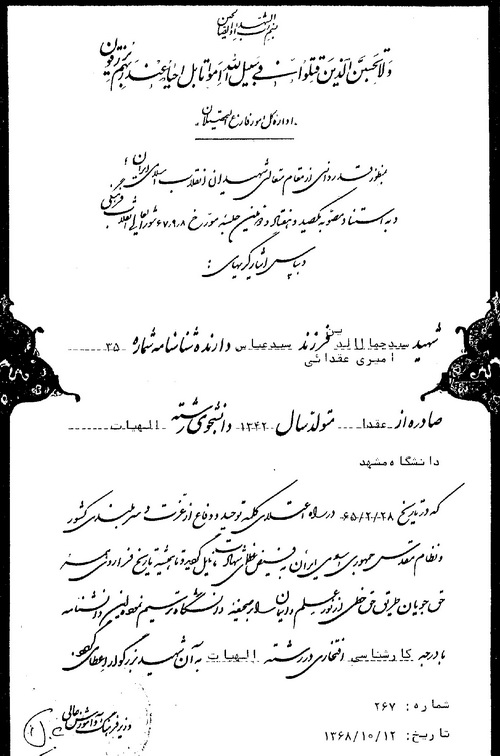 بسم رب الشهداء و الصدیقین
ولا تحسبن الذین قتلوا فی سبیل الله امواتا بل احیاء عند ربهم یرزقون
اداره کل امور فارغ التحصیلان
بمنظور قدردانی از مقام متعالی شهیدان انقلاب اسلامی ایران
و به استناد مصوبه یکصد و هفتاد و دومین جلسه مورخ ۶۷/۹/۸ شورایعالی انقلاب فرهنگی
و بپاس ایثارگریهای :
شهید سیدجمال الدین امیری عقدائی فرزند سیدعباس دارنده شناسنامه شماره ۳۵
صادره از عقدا متولد سال ۱۳۴۲ دانشجوی رشته الهیات
دانشگاه مشهد
که در تاریخ ۶۵/۲/۲۸ در راه اعتلای کلمه توحید و دفاع از عزت و سربلندی کشور
و نظام مقدس جمهوری اسلامی ایران به فیض عظمای شهادت نایل گردید و تا همیشه تاریخ فرا روی همه
حق جویان طریق حق خطی از نور علم و ایمان بر صحیفه دانشگاه ترسیم نموده این دانشنامه
با درجه کارشناسی افتخاری در رشته الهیات به آن شهید بزرگوار اعطا می گردد
شماره : ۲۶۷
تاریخ : ۱۳۶۸/۱۰/۱۲
وزیر فرهنگ و آموزش عالی